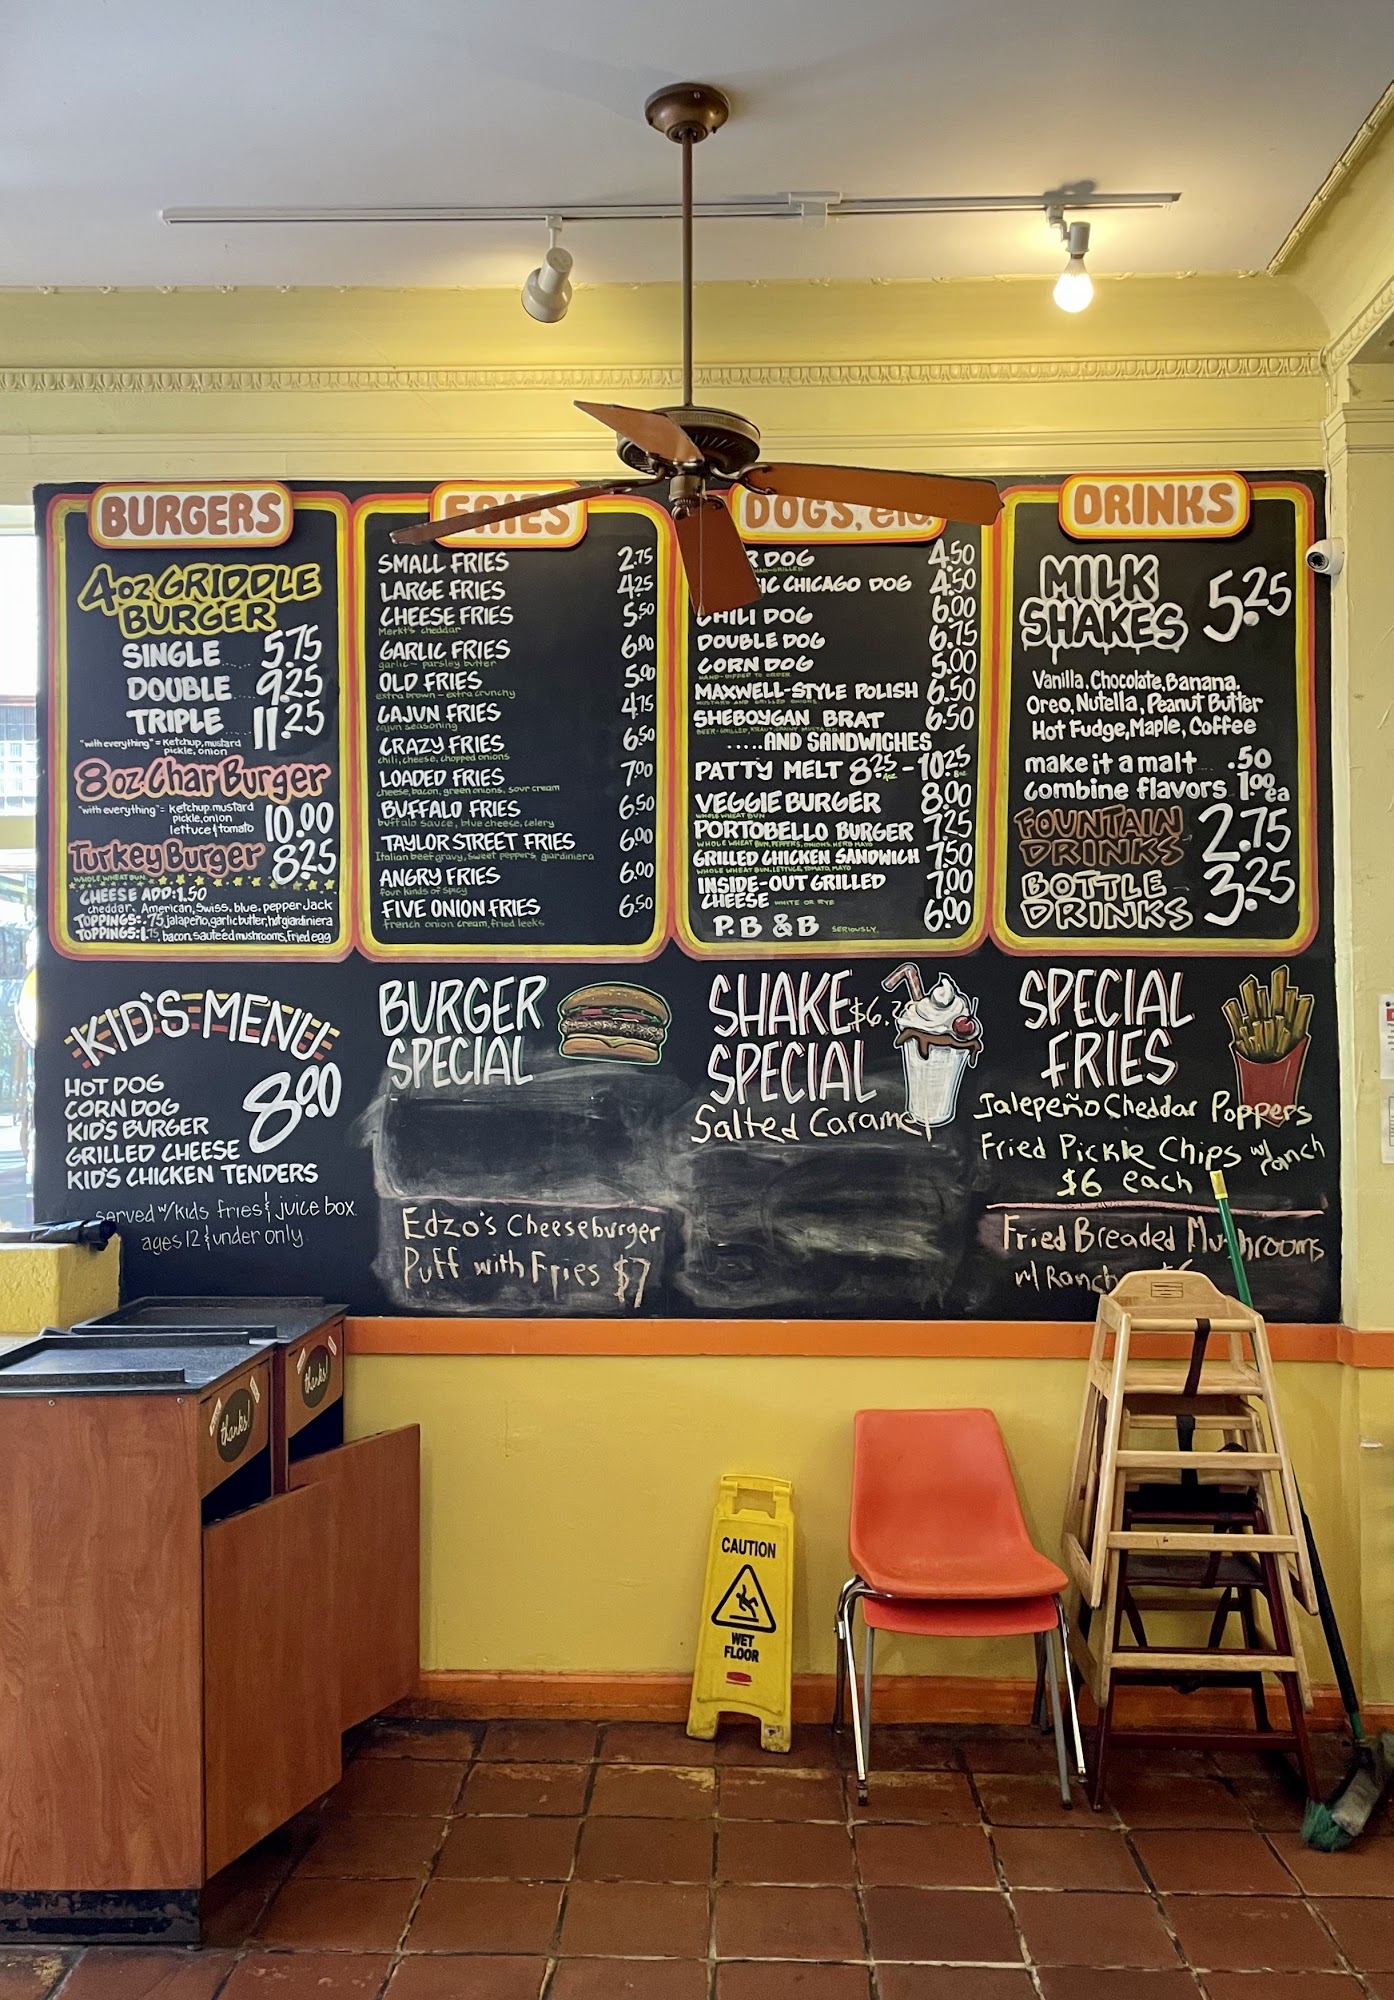 BURGERS
4oz GRIDDLE
BURGER
SINGLE 5.75
DOUBLE 9.25
TRIPLE 11.25
"with everything" = Ketchup, mustard
pickle, onion
8oz Char Burger
"with everything" = Ketchup, mustard
pickle, onion
lettuce & tomato 10.00
Turkey Burger 8.25
WHOLE WHEAT BUN
CHEESE ADD: 1.50
cheddar, American, Swiss, blue, pepper Jack
TOPPINGS: .75, jalapeño, garlic butter, hot giardiniera
TOPPINGS: 1.75, bacon, sauteed mushrooms, fried egg
FRIES
SMALL FRIES 2.75
LARGE FRIES 4.25
CHEESE FRIES 5.50
Merkt's cheddar
GARLIC FRIES 6.00
garlic - parsley butter
OLD FRIES 5.00
extra brown - extra crunchy
CAJUN FRIES 4.75
cajun seasoning
CRAZY FRIES 6.50
chili, cheese, chopped onions
LOADED FRIES 7.00
cheese, bacon, green onions, sour cream
BUFFALO FRIES 6.50
buffalo sauce, blue cheese, celery
TAYLOR STREET FRIES 6.00
Italian beef gravy, sweet peppers, giardiniera
ANGRY FRIES 6.00
four kinds of spicy
FIVE ONION FRIES 6.50
french onion cream, fried leeks
DOGS, etc.
DOG 4.50
CHICAGO DOG 4.50
CHILI DOG 6.00
DOUBLE DOG 6.75
CORN DOG 5.00
HAND-DIPPED TO ORDER
MAXWELL-STYLE POLISH 6.50
MUSTARD AND GRILLED ONIONS
SHEBOYGAN BRAT 6.50
.....AND SANDWICHES
PATTY MELT 8.25 - 10.25
4oz 8oz
VEGGIE BURGER 8.00
WHOLE WHEAT BUN
PORTOBELLO BURGER 7.25
WHOLE WHEAT BUN, PEPPERS, ONIONS, HERB MAYO
GRILLED CHICKEN SANDWICH 7.50
WHOLE WHEAT BUN, LETTUCE, TOMATO, MAYO
INSIDE-OUT GRILLED
CHEESE WHITE OR RYE 7.00
P.B & B SERIOUSLY. 6.00
DRINKS
MILK
SHAKES 5.25
Vanilla, Chocolate, Banana,
Oreo, Nutella, Peanut Butter
Hot Fudge, Maple, Coffee
make it a malt .50
combine flavors 1.00 ea
FOUNTAIN
DRINKS 2.75
BOTTLE
DRINKS 3.25
KID'S MENU
HOT DOG
CORN DOG
KID'S BURGER
GRILLED CHEESE
KID'S CHICKEN TENDERS
8.00
served w/kids fries & juice box
ages 12 & under only
BURGER
SPECIAL
Edzo's Cheeseburger
Puff with Fries $7
SHAKE
SPECIAL
Salted Caramel
SPECIAL
FRIES
Jalepeño Cheddar Poppers
Fried Pickle Chips w/ ranch
$6 each
Fried Breaded Mushrooms
w/ Ranch
thanks!
thanks!
CAUTION
WET
FLOOR